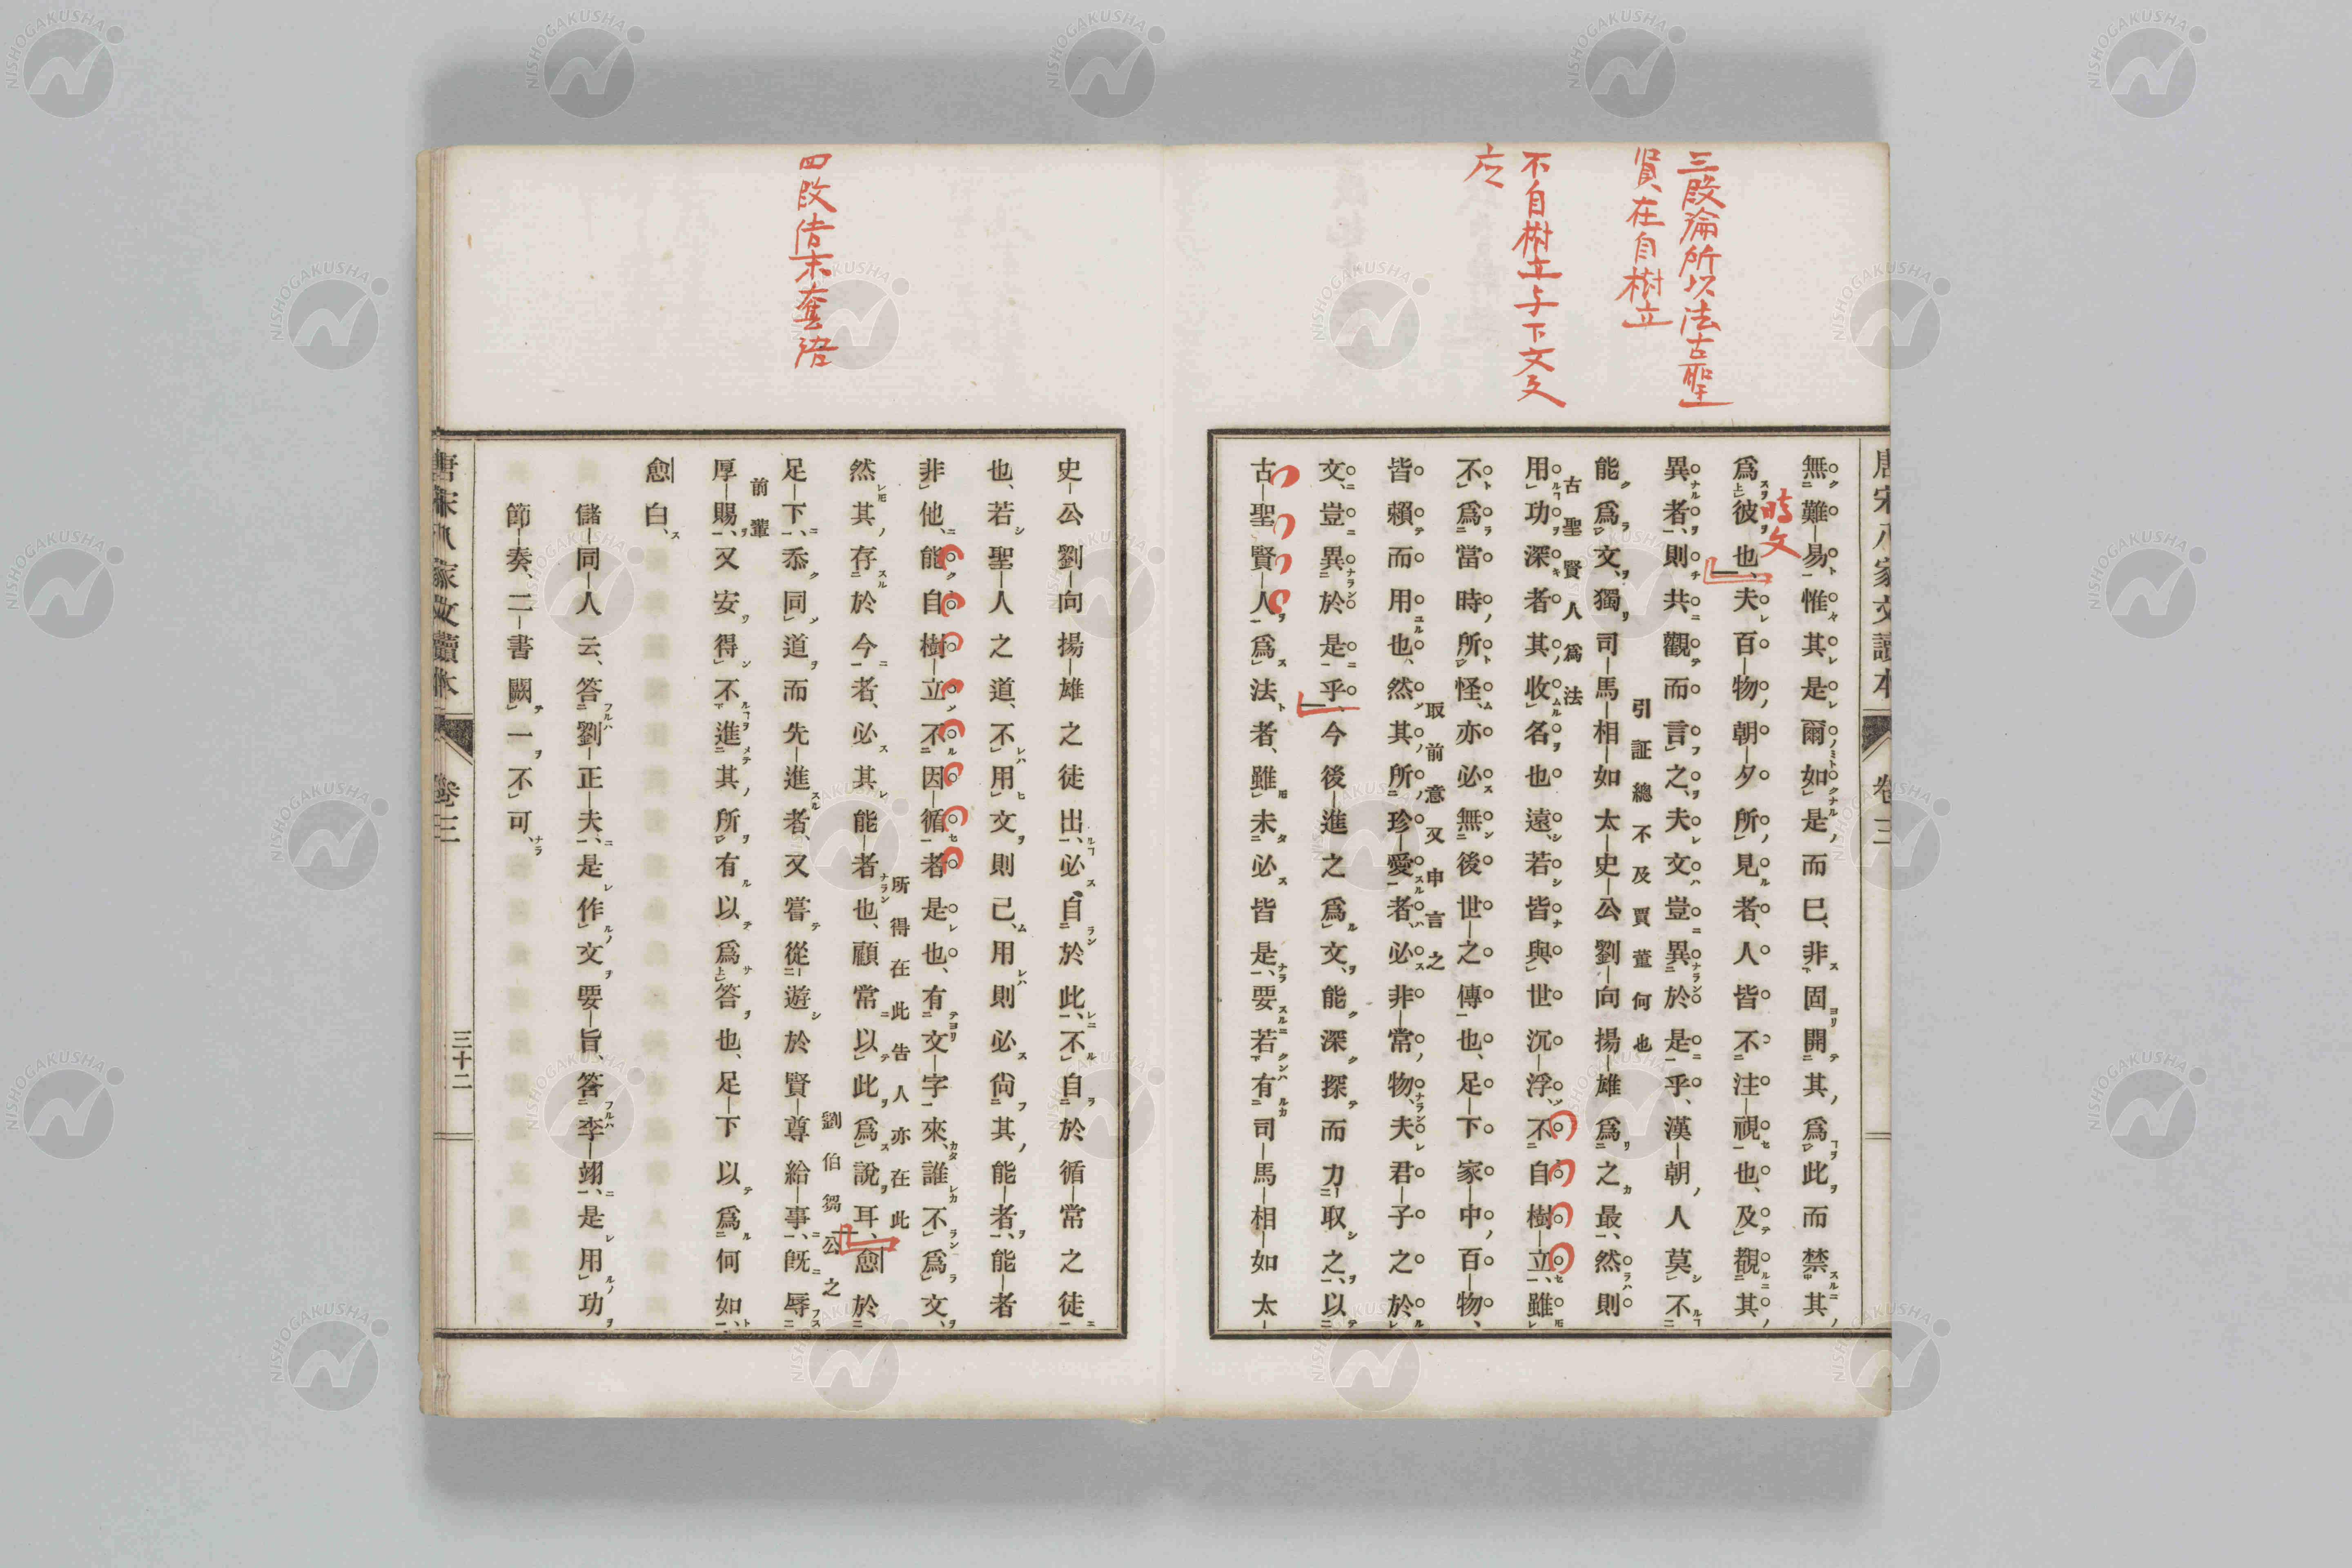 三段論所以法古聖
賢、在自樹立
不自樹立与下文反
应
唐宋八家文讀本
卷三
無難易惟其是爾如是而已、非固開其爲此而禁其
爲彼也、夫百物朝夕所見者、人皆不注視也、及觀其
時文
異者、則共觀而言之、夫文豈異於是乎、漢朝人莫不
引証總不及賈董何也
能爲文、獨司馬相如太史公劉向揚雄爲之最、然則
古聖賢人爲法
用功深者其收名也遠、若皆與世沉浮、不自樹立、雖
不爲當時所怪、亦必無後世之傳也、足下家中百物、
取前意又申言之
皆賴而用也、然其所珍愛者、必非常物、夫君子之於
文、豈異於是乎、今後進之爲文、能深探而力取之、以
古聖賢人爲法者、雖未必皆是、要若有司馬相如太
四段結末套語
史公劉向揚雄之徒出、必自於此、不自於循常之徒
也、若聖人之道、不用文則已、用則必尙其能者、能者
非他、能自樹立不因循者是也、有文字來、誰不爲文、
所得在此告人亦在此
然其存於今者、必其能者也、顧常以此爲說耳、愈於
劉伯芻公之
足下、忝同道而先進者、又嘗從遊於賢尊給事、既辱
前輩
厚賜、又安得不進其所有以爲答也、足下以爲何如、
愈白、
儲同人云、答劉正夫、是作文要旨、答李翊、是用功
節奏、二書闕一不可、
唐宋八家文讀本
卷三
三十二